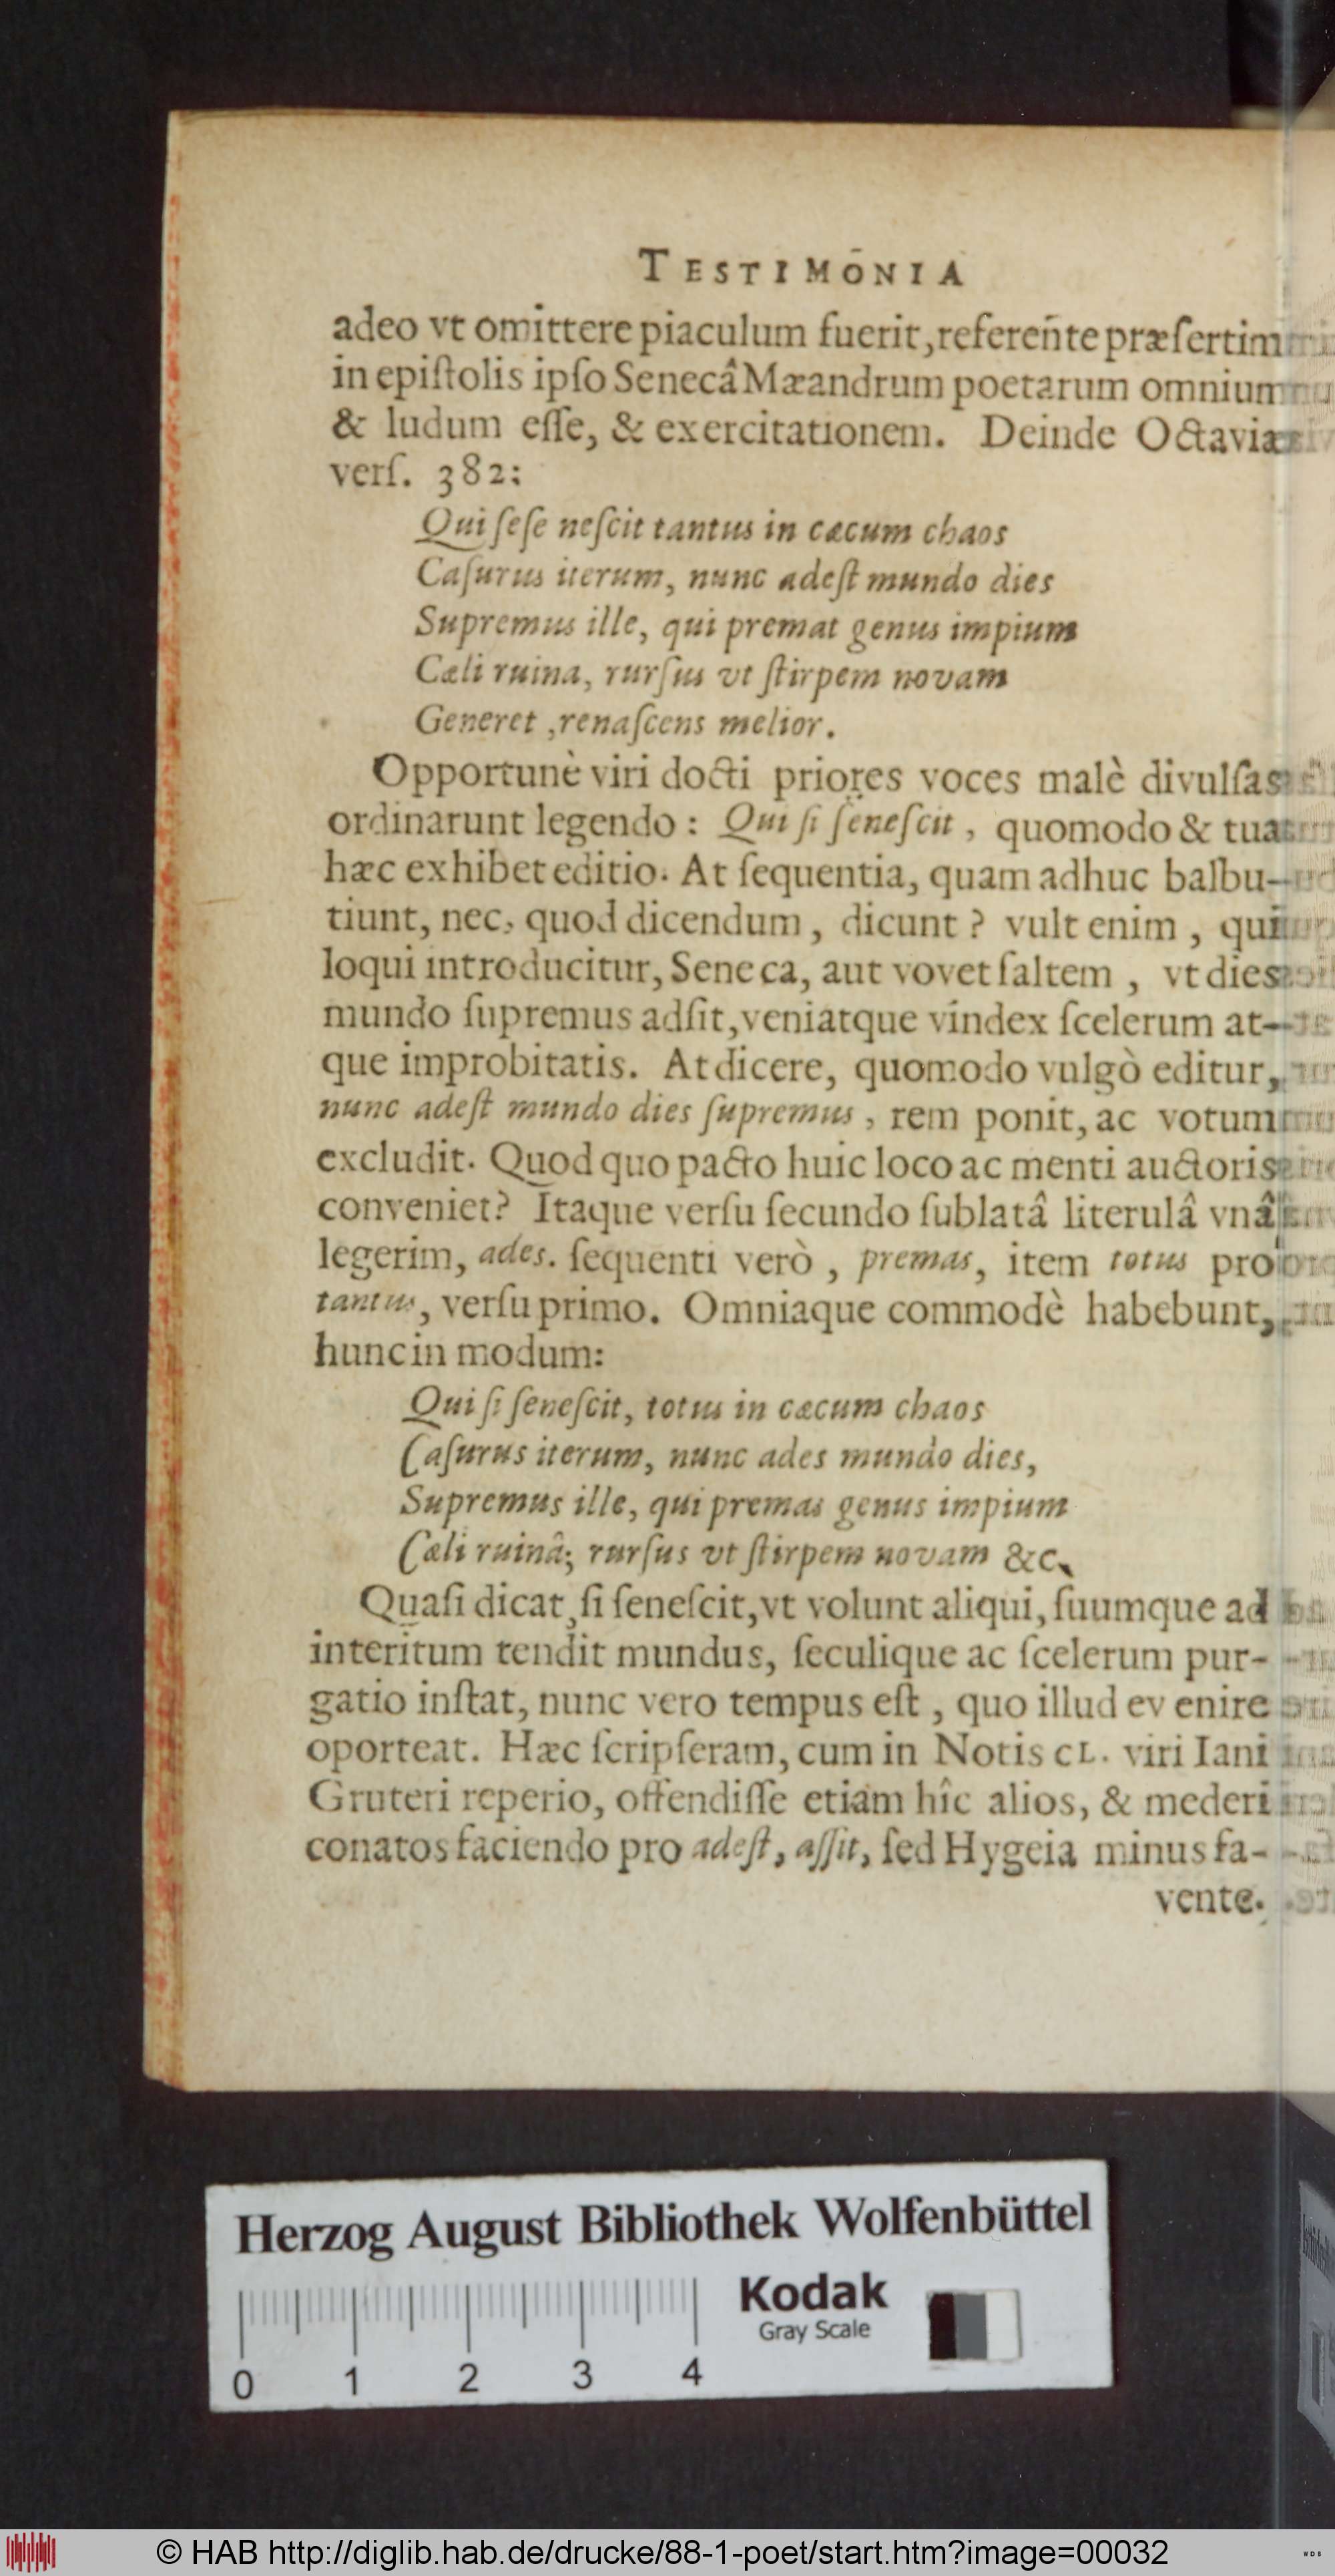 TESTIMŌNIA
adeo vt omittere piaculum fuerit, refereñte præſertim
in epiſtolis ipſo Senecâ Mæandrum poetarum omnium
& ludum eſſe, & exercitationem. Deinde Octaviæ
verſ. 382:
Qui ſeſe neſcit tantus in cæcum chaos
Caſurus iterum, nunc adeſt mundo dies
Supremus ille, qui premat genus impium
Cæli ruina, rurſus vt ſtirpem novam
Generet, renaſcens melior.
Opportunè viri docti priores voces malè divulſas
ordinarunt legendo: Qui ſi ſeneſcit, quomodo & tua
hæc exhibet editio. At ſequentia, quam adhuc balbu-
tiunt, nec, quod dicendum, dicunt? vult enim, qui
loqui introducitur, Seneca, aut vovet ſaltem, vt dies
mundo ſupremus adſit, veniatque vindex ſcelerum at-
que improbitatis. At dicere, quomodo vulgò editur,
nunc adeſt mundo dies ſupremus, rem ponit, ac votum
excludit. Quod quo pacto huic loco ac menti auctoris
conveniet? Itaque verſu ſecundo ſublatâ literulâ vnâ
legerim, ades. ſequenti verò, premas, item totus pro
tantus, verſu primo. Omniaque commodè habebunt,
hunc in modum:
Qui ſi ſeneſcit, totus in cæcum chaos
Caſurus iterum, nunc ades mundo dies,
Supremus ille, qui premas genus impium
Cæli ruinâ; rurſus vt ſtirpem novam &c.
Quaſi dicat, ſi ſeneſcit, vt volunt aliqui, ſuumque ad
interitum tendit mundus, ſeculique ac ſcelerum pur-
gatio inſtat, nunc vero tempus eſt, quo illud evenire
oporteat. Hæc ſcripſeram, cum in Notis CL. viri Iani
Gruteri reperio, offendiſſe etiam hîc alios, & mederi
conatos faciendo pro adeſt, aſſit, ſed Hygeia minus fa-
vente.
Herzog August Bibliothek Wolfenbüttel
Kodak
Gray Scale
0 1 2 3 4
© HAB http://diglib.hab.de/drucke/88-1-poet/start.htm?image=00032
WDB